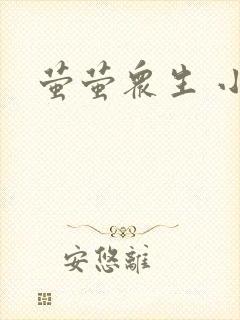 萤萤眾生 小
安悠離